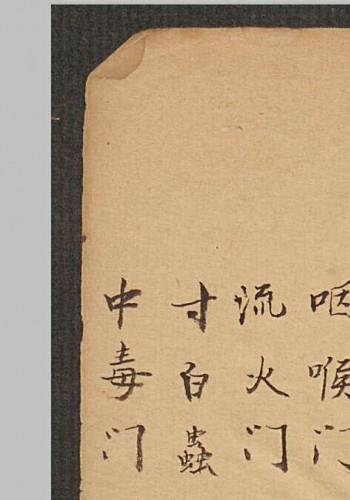 咽喉门
流火门
寸白蟲
中毒门